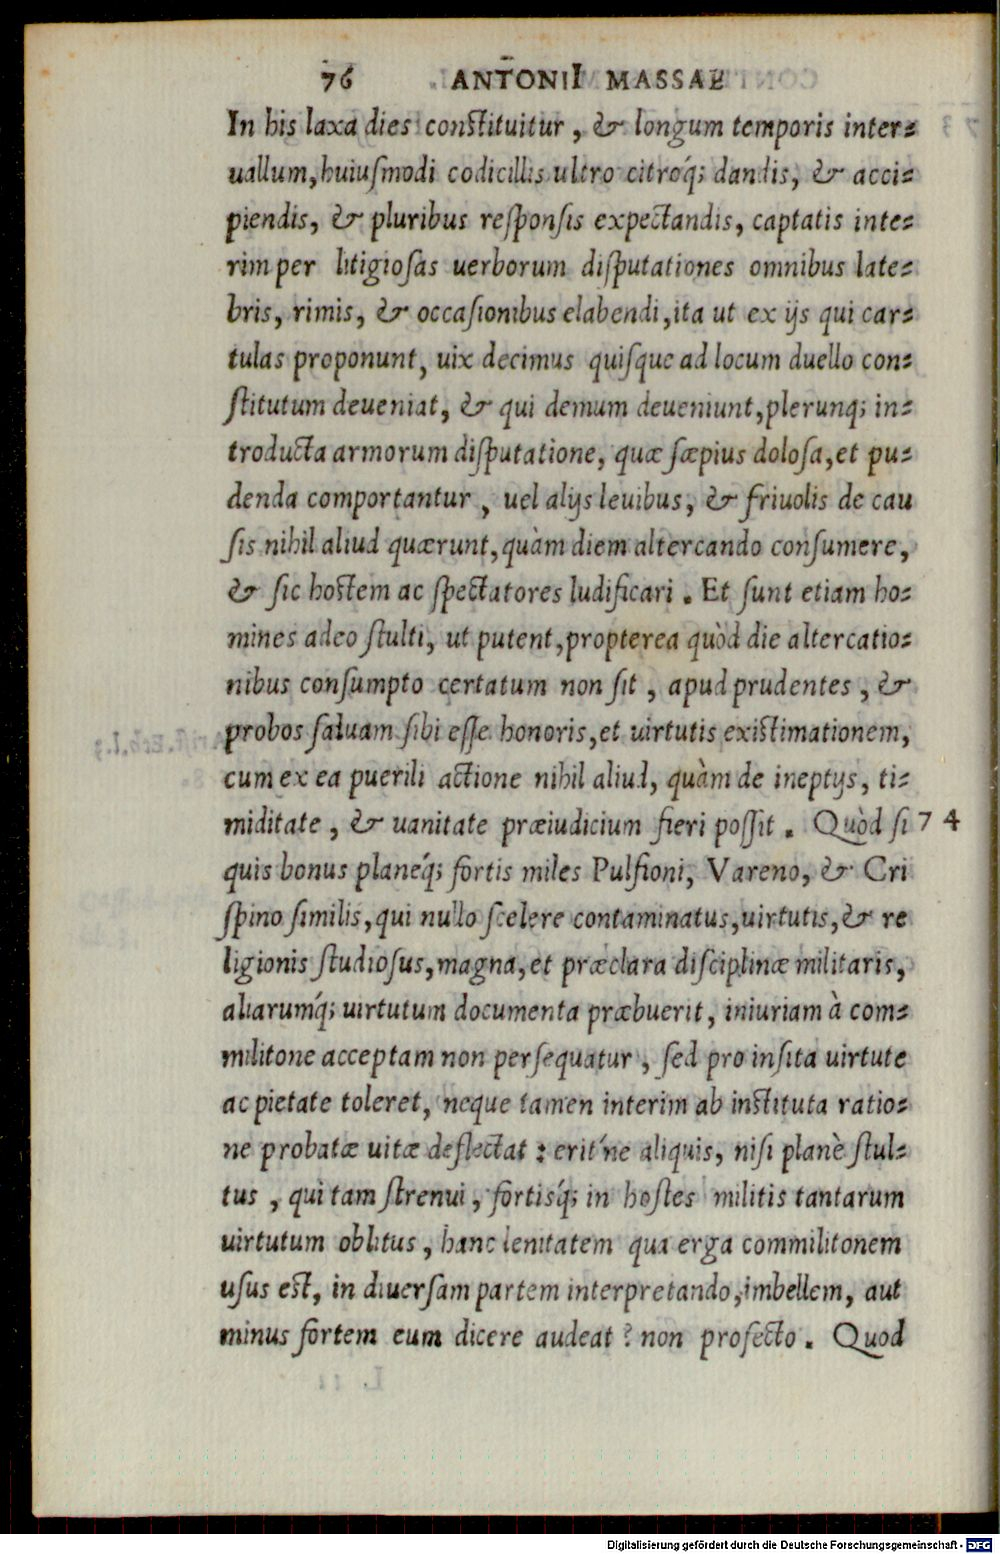 76 ANTONII MASSAE
In his laxa dies constituitur, & longum temporis inter-
uallum, huiusmodi codicillis ultro citroq́; dandis, & acci-
piendis, & pluribus responsis expectandis, captatis inte-
rim per litigiosas uerborum disputationes omnibus late-
bris, rimis, & occasionibus elabendi, ita ut ex ijs qui car-
tulas proponunt, uix decimus quisque ad locum duello con-
stitutum deueniat, & qui demum deueniunt, plerunq; in-
troducta armorum disputatione, quæ sæpius dolosa, et pu-
denda comportantur, uel alijs leuibus, & friuolis de cau
sis nihil aliud quærunt, quàm diem altercando consumere,
& sic hostem ac spectatores ludificari. Et sunt etiam ho-
mines adeo stulti, ut putent, propterea quòd die altercatio-
nibus consumpto certatum non sit, apud prudentes, &
probos saluam sibi esse honoris, et uirtutis existimationem,
cum ex ea puerili actione nihil aliud, quàm de ineptijs, ti-
miditate, & uanitate præiudicium fieri possit. Quòd si 74
quis bonus planeq́; fortis miles Pulfioni, Vareno, & Cri
spino similis, qui nullo scelere contaminatus, uirtutis, & re
ligionis studiosus, magna, et præclara disciplinæ militaris,
aliarumq́; uirtutum documenta præbuerit, iniuriam à com-
militone acceptam non persequatur, sed pro insita uirtute
ac pietate toleret, neque tamen interim ab instituta ratio-
ne probatæ uitæ deflectat: erit'ne aliquis, nisi planè stul-
tus, qui tam strenui, fortisq́; in hostes militis tantarum
uirtutum oblitus, hanc lenitatem qua erga commilitonem
usus est, in diuersam partem interpretando, imbellem, aut
minus fortem eum dicere audeat? non profecto. Quod
Digitalisierung gefördert durch die Deutsche Forschungsgemeinschaft - DFG